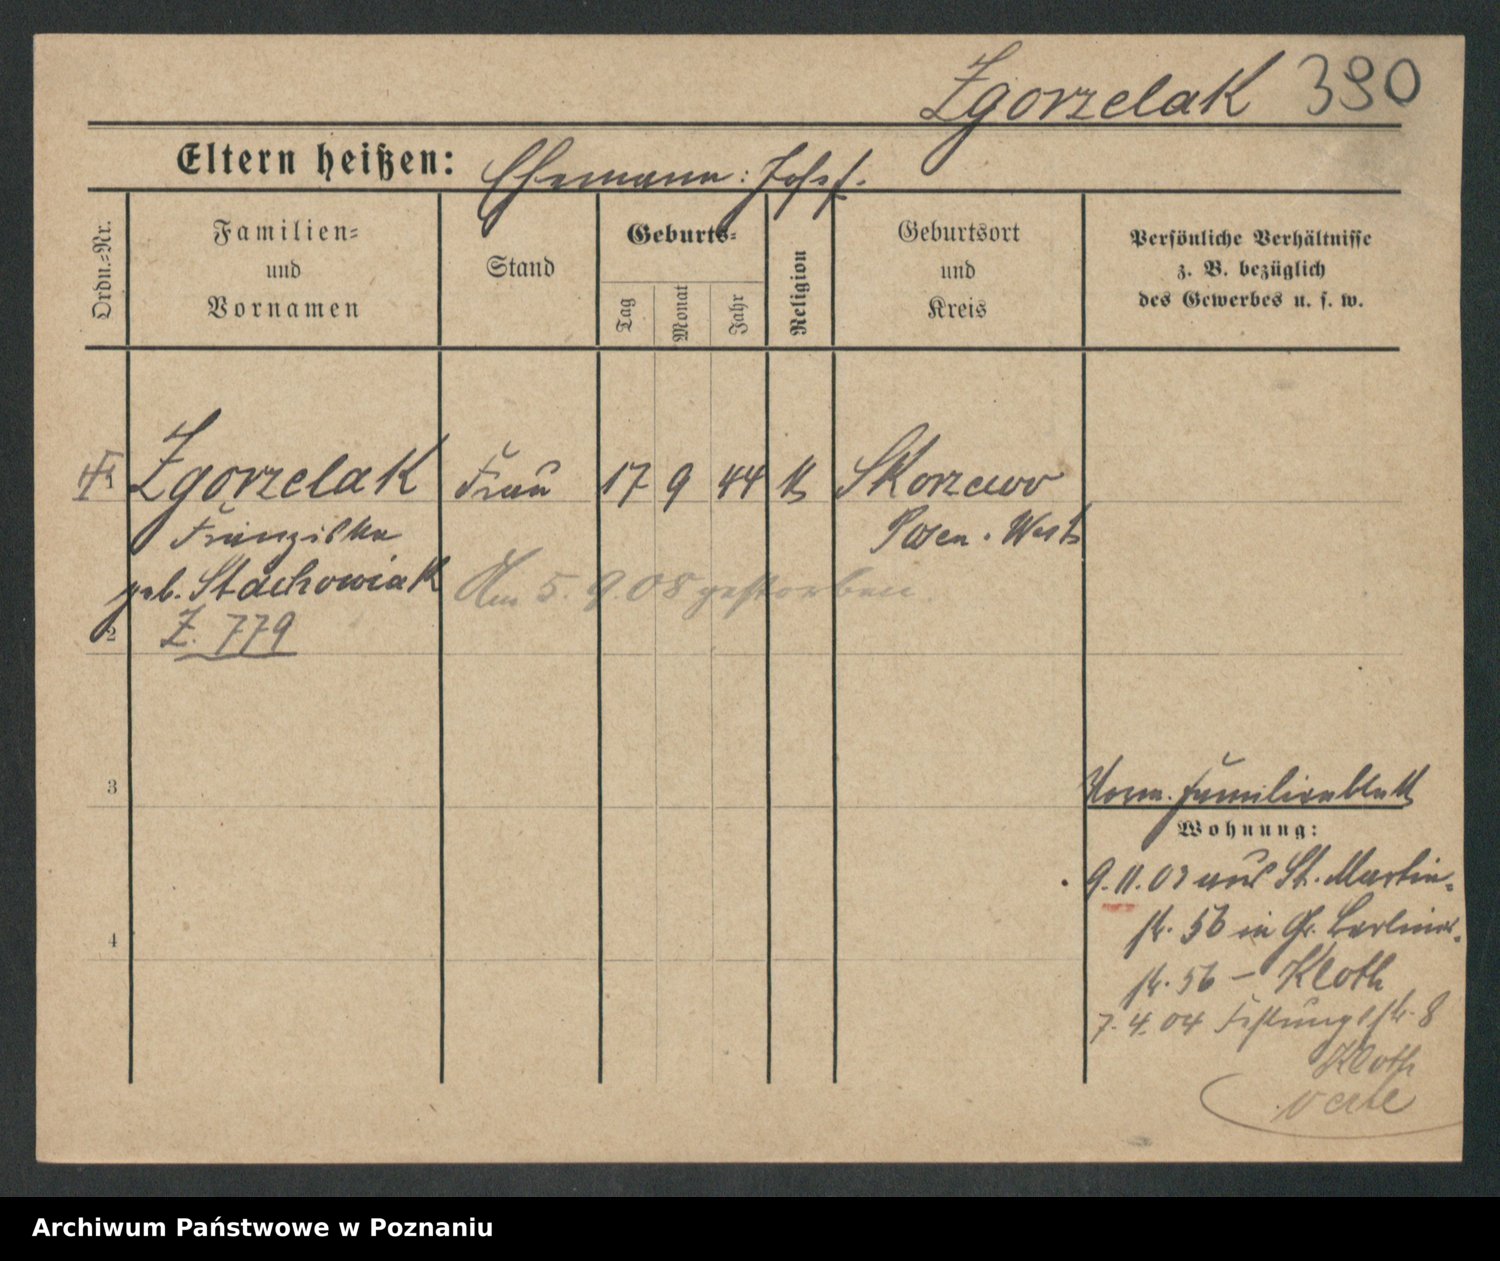 Zgorzelak 390
Eltern heißen: Ehemann: Josef.
Ordn.-Nr.
Familien-
und
Vornamen
Stand
Geburts-
Tag
Monat
Jahr
Religion
Geburtsort
und
Kreis
Persönliche Verhältnisse
z. B. bezüglich
des Gewerbes u. s. w.
Zgorzelak Frau 17 9 44 k Skorzewo
Franziska Posen. West
geb. Stachowiak Am 5. 9. 08 gestorben.
2 Z. 779
3 Familienblatt
Wohnung:
9. 11. 03 aus St. Martin-
4 str. 56 in Gr. Berliner-
str. 56 – Kloth
7. 4. 04 Festungsstr. 8
Kloth
verte
Archiwum Państwowe w Poznaniu